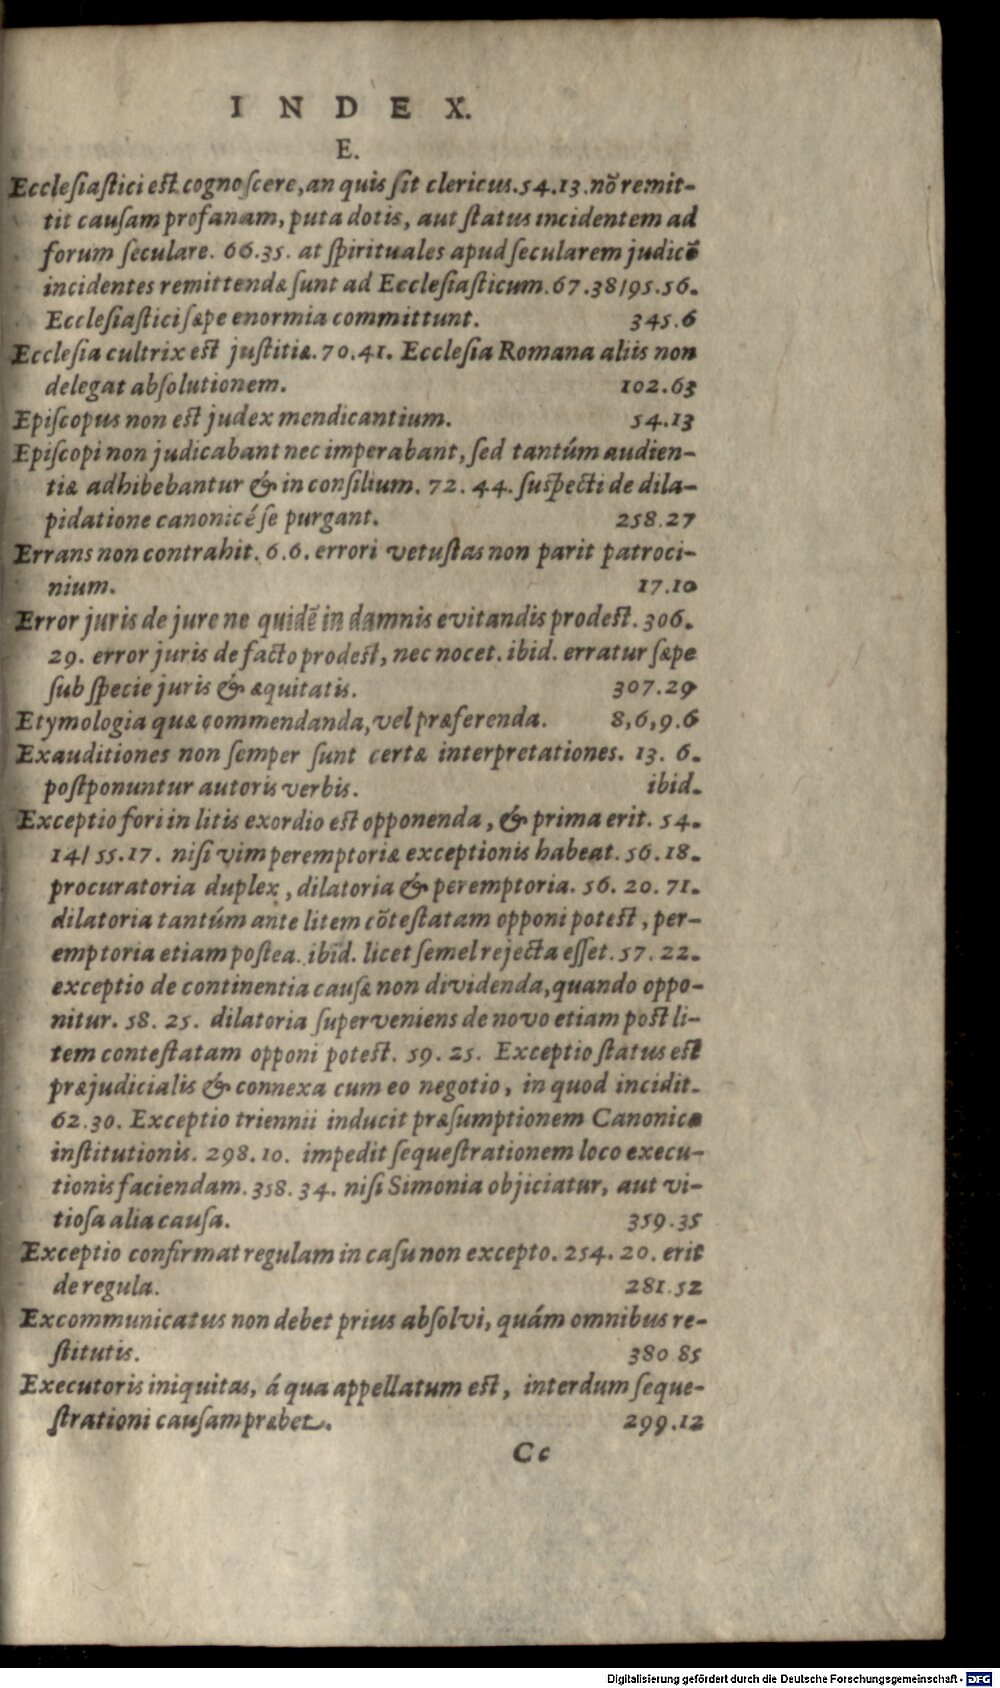 INDEX.
E.
Eccleſiaſtici eſt cognoſcere, an quis ſit clericus. 54.13. nõ remit-
tit cauſam profanam, puta dotis, aut ſtatus incidentem ad
forum ſeculare. 66.35. at ſpirituales apud ſecularem judicẽ
incidentes remittendæ ſunt ad Eccleſiaſticum. 67.38/95.56.
Eccleſiaſtici ſæpe enormia committunt. 345.6
Eccleſia cultrix eſt juſtitiæ. 70.41. Eccleſia Romana aliis non
delegat abſolutionem. 102.63
Epiſcopus non eſt judex mendicantium. 54.13
Epiſcopi non judicabant nec imperabant, ſed tantúm audien-
tiæ adhibebantur & in conſilium. 72. 44. ſuſpecti de dila-
pidatione canonicé ſe purgant. 258.27
Errans non contrahit. 6.6. errori vetuſtas non parit patroci-
nium. 17.10
Error juris de jure ne quidẽ in damnis evitandis prodeſt. 306.
29. error juris de facto prodeſt, nec nocet. ibid. erratur ſæpe
ſub ſpecie juris & æquitatis. 307.29
Etymologia quæ commendanda, vel præferenda. 8,6,9.6
Exauditiones non ſemper ſunt certæ interpretationes. 13. 6.
poſtponuntur autoris verbis. ibid.
Exceptio fori in litis exordio eſt opponenda, & prima erit. 54.
14/ 55.17. niſi vim peremptoriæ exceptionis habeat. 56.18.
procuratoria duplex, dilatoria & peremptoria. 56. 20. 71.
dilatoria tantúm ante litem cõteſtatam opponi poteſt, per-
emptoria etiam poſtea. ibid. licet ſemel rejecta eſſet. 57. 22.
exceptio de continentia cauſæ non dividenda, quando oppo-
nitur. 58. 25. dilatoria ſuperveniens de novo etiam poſt li-
tem conteſtatam opponi poteſt. 59. 25. Exceptio ſtatus eſt
præjudicialis & connexa cum eo negotio, in quod incidit.
62.30. Exceptio triennii inducit præſumptionem Canonicæ
inſtitutionis. 298.10. impedit ſequeſtrationem loco execu-
tionis faciendam. 358. 34. niſi Simonia objiciatur, aut vi-
tioſa alia cauſa. 359.35
Exceptio confirmat regulam in caſu non excepto. 254. 20. erit
de regula. 281.52
Excommunicatus non debet prius abſolvi, quám omnibus re-
ſtitutis. 380 85
Executoris iniquitas, á qua appellatum eſt, interdum ſeque-
ſtrationi cauſam præbet. 299.12
Cc
Digitalisierung gefördert durch die Deutsche Forschungsgemeinschaft - DFG